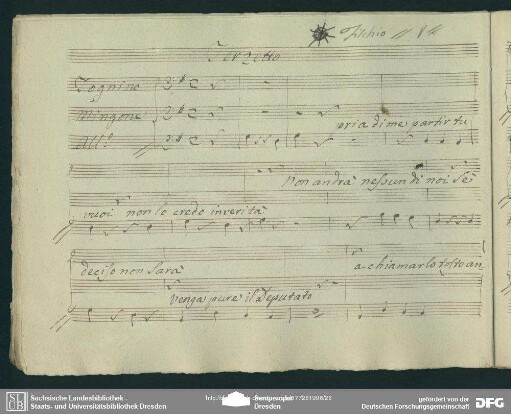 Fischio
Terzetto
Tognino
Mingone
pria di me partir tu
All:º
Non andrà nessun di noi se
vuoi non lo credo in verità
deciso non sarà a chiamarlo tosto an
venga pure il Deputato
SLUB
Sächsische Landesbibliothek -
Staats- und Universitätsbibliothek Dresden
Semperoper
Dresden
gefördert von der
Deutschen Forschungsgemeinschaft
DFG